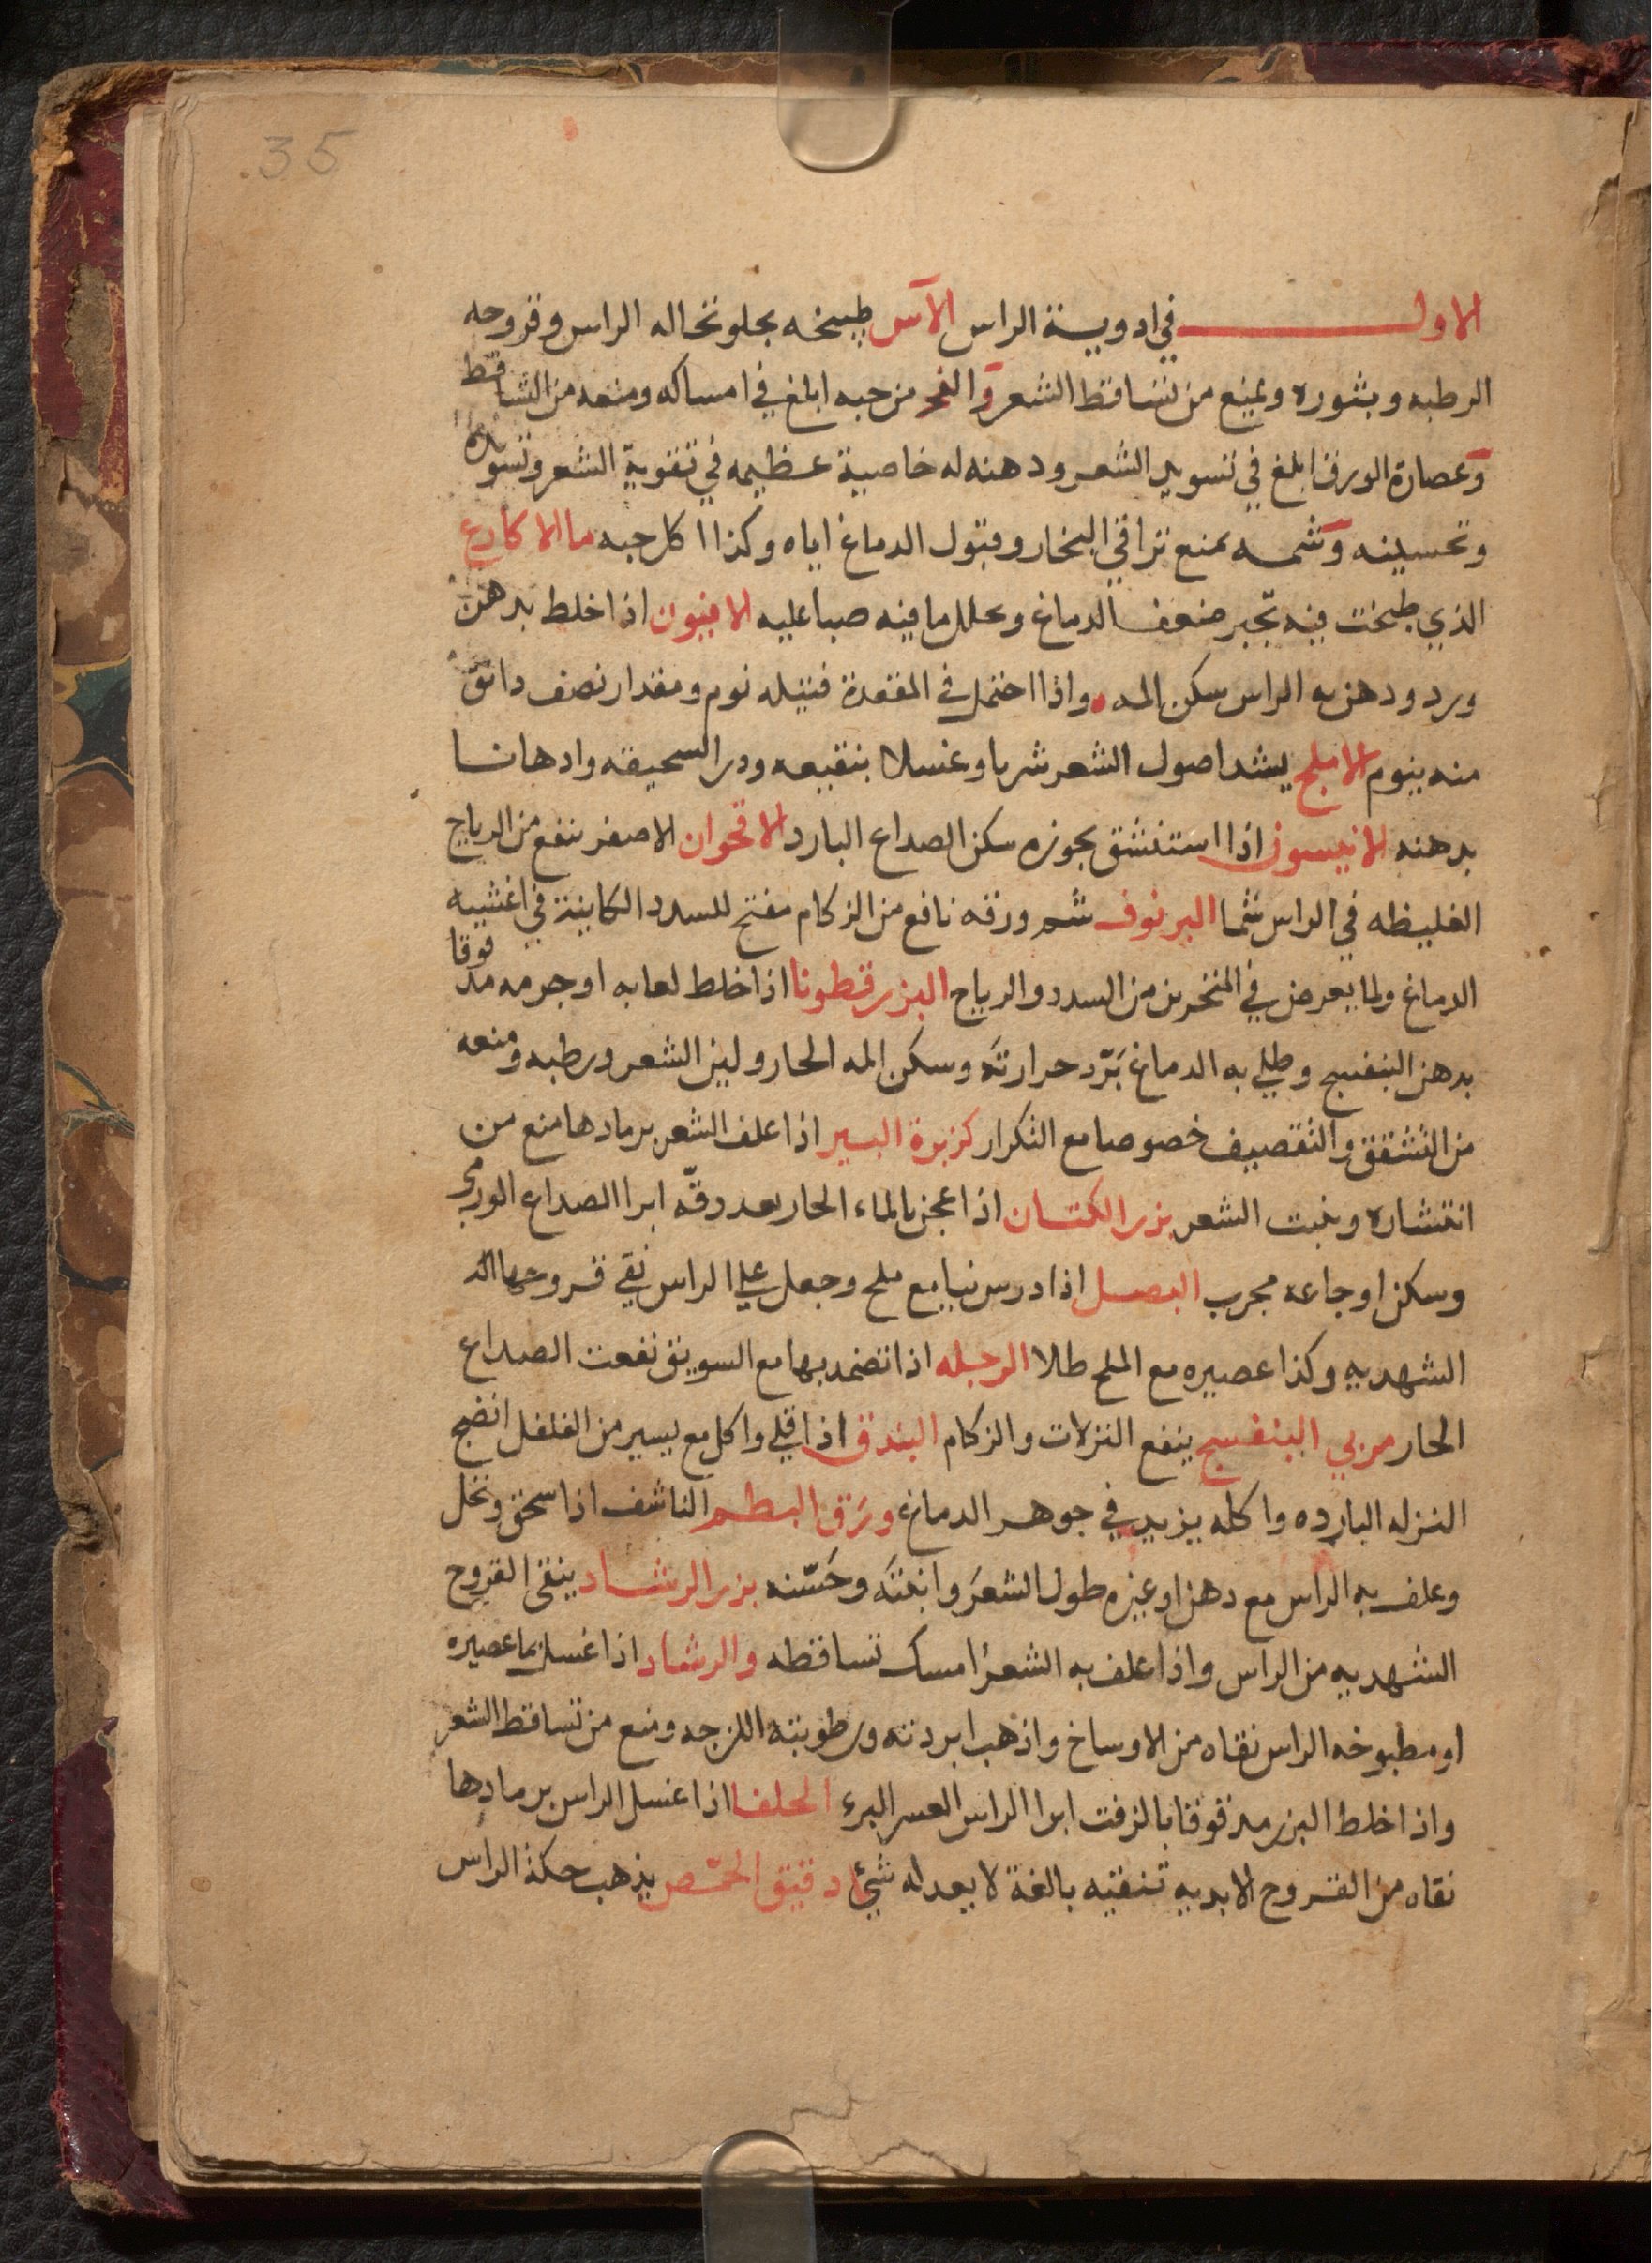 35
الاول في ادوية الراس الآس طبيخه يجلو نخاله الراس وقروحه
الرطبه وبثوره ويمنع من تساقط الشعر و من حبه ابلغ في امساكه ومنعه من التساقط
وعصارة الورق ابلغ في تسويد الشعر ودهنه له خاصية عظيمه في تقوية الشعر وتسويده
وتحسينه وشمه يمنع تراقي البخار وقبول الدماغ اياه وكذا اكل حبه ما الاكارع
الذي طبخت فيه يجبر ضعف الدماغ ويحلل ما فيه صبا عليه الافيون اذا خلط بدهن
ورد ودهن به الراس سكن المه واذا احتمل في المقعدة فتيله نوم ومقدار نصف دانق
منه ينوم الاملج يشد اصول الشعر شربا وغسلا بنقيعه وذر السحيقه وادهانا
بدهنه الانيسون اذا استنشق بخوره سكن الصداع البارد الاقحوان الاصفر ينفع من الرياح
الغليظه في الراس شما البرنوف شم ورقه نافع من الزكام مفتح للسدد الكاينة في اغشيه
الدماغ ولما يعرض في المنخرين من السدد والرياح البزرقطونا اذا خلط لعابه او جرمه مدقوقا
بدهن البنفسج وطلي به الدماغ برّد حرارته وسكن المه الحار ولين الشعر ورطبه ومنعه
من التشقق والتقصيف خصوصا مع التكرار كزبرة البير اذا علف الشعر برمادها منع من
انتشاره وينبت الشعر بزر الكتان اذا عجن بالماء الحار بعد دقّه ابرا الصداع
وسكن اوجاعه مجرب البصل اذا درس نيا مع ملح وجعل على الراس نقي قروحها
الشهديه وكذا عصيره مع الملح طلا الرجله اذا تضمد بها مع السويق نفعت الصداع
الحار مربي البنفسج ينفع النزلات والزكام البندق اذا قلي واكل مع يسير من الفلفل انضج
النزله البارده واكله يزيد في جوهر الدماغ ورق البطم الناشف اذا سحق ونخل
وعلف به الراس مع دهن او غيره طول الشعر وانبته وحَسّنه بزر الرشاد ينقى القروح
الشهديه من الراس واذا علف به الشعر امسك تساقطه والرشاد اذا غسل بما عصيره
او مطبوخه الراس نقاه من الاوساخ واذهب ابردته ورطوبته اللزجه ومنع من تساقط الشعر
واذا خلط البزر مدقوقا بالزفت ابرا الراس العسر البرء الحلفا اذا غسل الراس برمادها
نقاه من القروح الابديه تنقيه بالغة لا يعدله شيئ دقيق الحمّص يذهب حكة الراس